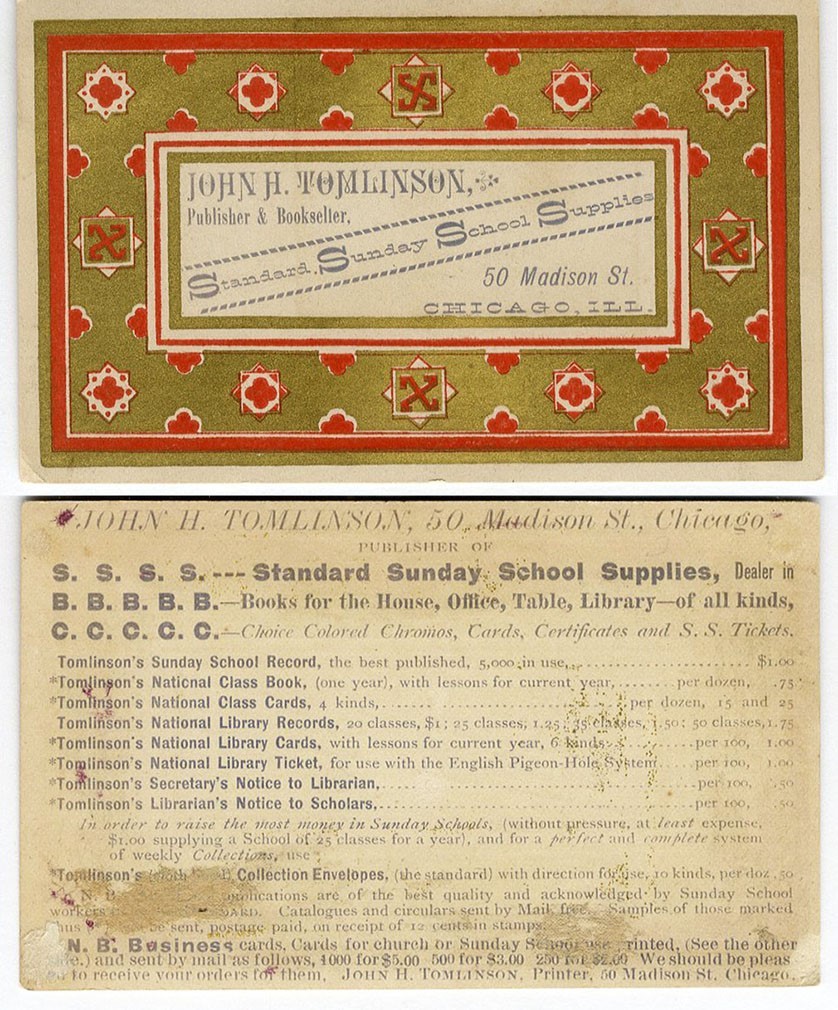 JOHN H. TOMLINSON,
Publisher & Bookseller,
Standard Sunday School Supplies
50 Madison St.
CHICAGO, ILL.
JOHN H. TOMLINSON, 50 Madison St., Chicago,
PUBLISHER OF
S. S. S. S. --- Standard Sunday School Supplies, Dealer in
B. B. B. B. B.—Books for the House, Office, Table, Library—of all kinds,
C. C. C. C. C.—Choice Colored Chromos, Cards, Certificates and S. S. Tickets.
Tomlinson's Sunday School Record, the best published, 5,000 in use,.............................. $1.00
*Tomlinson's National Class Book, (one year), with lessons for current year,........per dozen, .75
*Tomlinson's National Class Cards, 4 kinds,..............................per dozen, 15 and 25
Tomlinson's National Library Records, 20 classes, $1; 25 classes, 1.25; 35 classes, 1.50; 50 classes, 1.75
*Tomlinson's National Library Cards, with lessons for current year, 6 kinds..........per 100, 1.00
*Tomlinson's National Library Ticket, for use with the English Pigeon-Hole System....per 100, 1.00
*Tomlinson's Secretary's Notice to Librarian,..............................per 100, .50
*Tomlinson's Librarian's Notice to Scholars,..............................per 100, .50
In order to raise the most money in Sunday Schools, (without pressure, at least expense,
$1.00 supplying a School of 25 classes for a year), and for a perfect and complete system
of weekly Collections, use
*Tomlinson's Collection Envelopes, (the standard) with direction for use, 10 kinds, per doz .50
N. B. are of the best quality and acknowledged by Sunday School
workers Catalogues and circulars sent by Mail free. Samples of those marked
thus be sent, postage paid, on receipt of 12 cents in stamps.
N. B. Business cards, Cards for church or Sunday School use printed, (See the other
side.) and sent by mail as follows, 1000 for $5.00 500 for $3.00 250 for $2.00 We should be pleas
ed to receive your orders for them, JOHN H. TOMLINSON, Printer, 50 Madison St. Chicago.